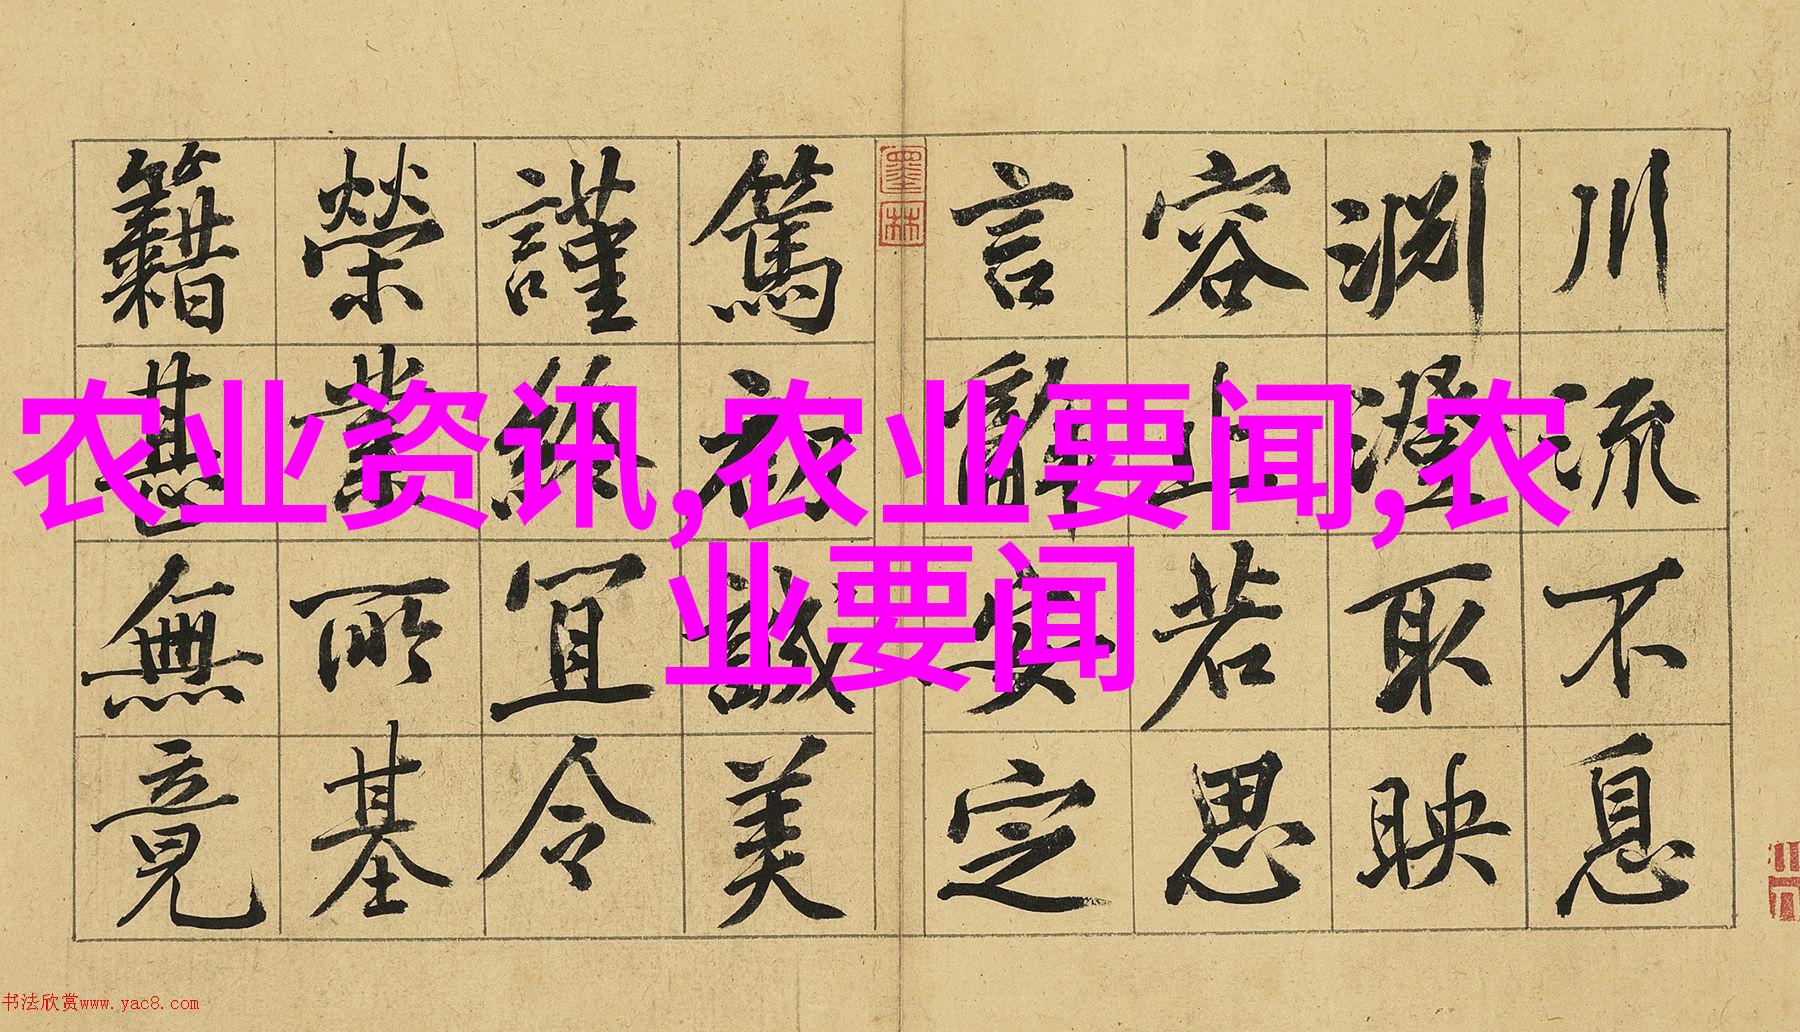 川流不息
淵澄取映
容止若思
言辭安定
墨林
篤初誠美
謹終宜令
榮業所基
籍甚無竟
农业资讯,农业要闻,农
业要闻
书法欣赏www.yac8.com